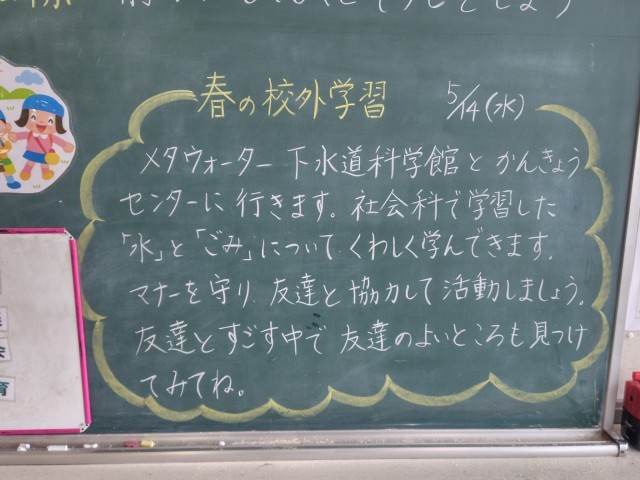 春の校外学習 5/14(水)
メタウォーター下水道科学館とかんきょう
センターに行きます。社会科で学習した
「水」と「ごみ」について、くわしく学んできます。
マナーを守り、友達と協力して活動しましょう。
友達とすごす中で友達のよいところも見つけ
てみてね。
育